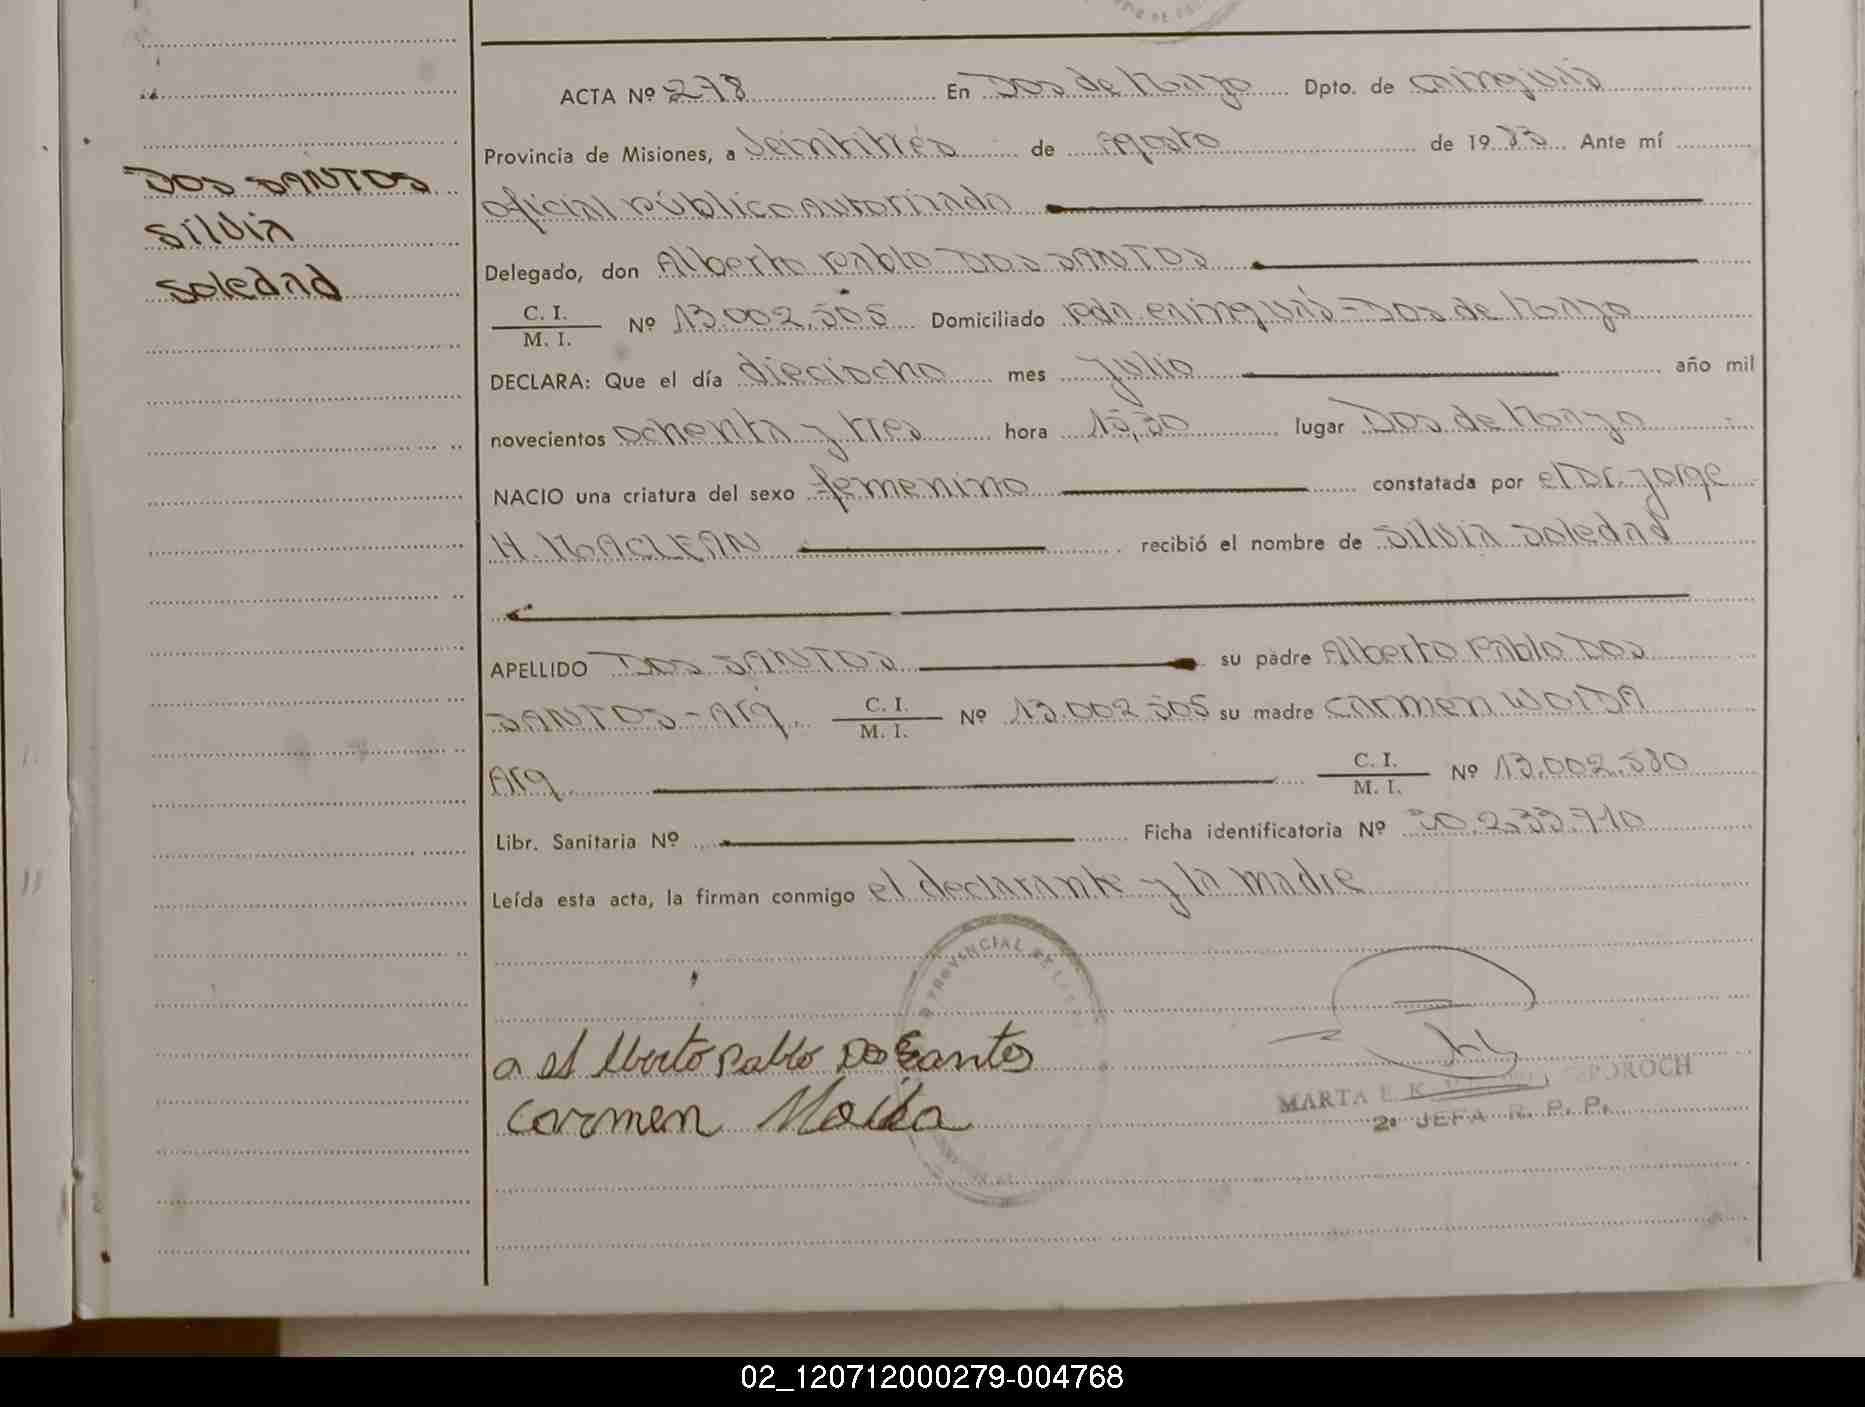 DOS SANTOS
Silvia
Soledad
ACTA Nº 278 En Dos de Mayo Dpto. de Cainguás
Provincia de Misiones, a Veintitrés de Agosto de 1983 Ante mí
oficial público autorizado
Delegado, don Alberto Pablo DOS SANTOS
C. I.
M. I. Nº 13.002.505 Domiciliado Pdn. Cainguás - Dos de Mayo
DECLARA: Que el día dieciocho mes Julio año mil
novecientos ochenta y tres hora 15,30 lugar Dos de Mayo
NACIO una criatura del sexo femenino constatada por el Dr. Jorge
H. MACLEAN recibió el nombre de Silvia Soledad
APELLIDO DOS SANTOS su padre Alberto Pablo DOS
SANTOS - Arg. C. I.
M. I. Nº 13.002.505 su madre Carmen
Arg. C. I.
M. I. Nº 13.002.580
Libr. Sanitaria Nº Ficha identificatoria Nº 30.233.710
Leída esta acta, la firman conmigo el declarante y la madre
PROVINCIAL DE
Alberto Pablo Dos Santos
Carmen
MARTA E. K.
2º JEFA R. P. P.
02_120712000279-004768